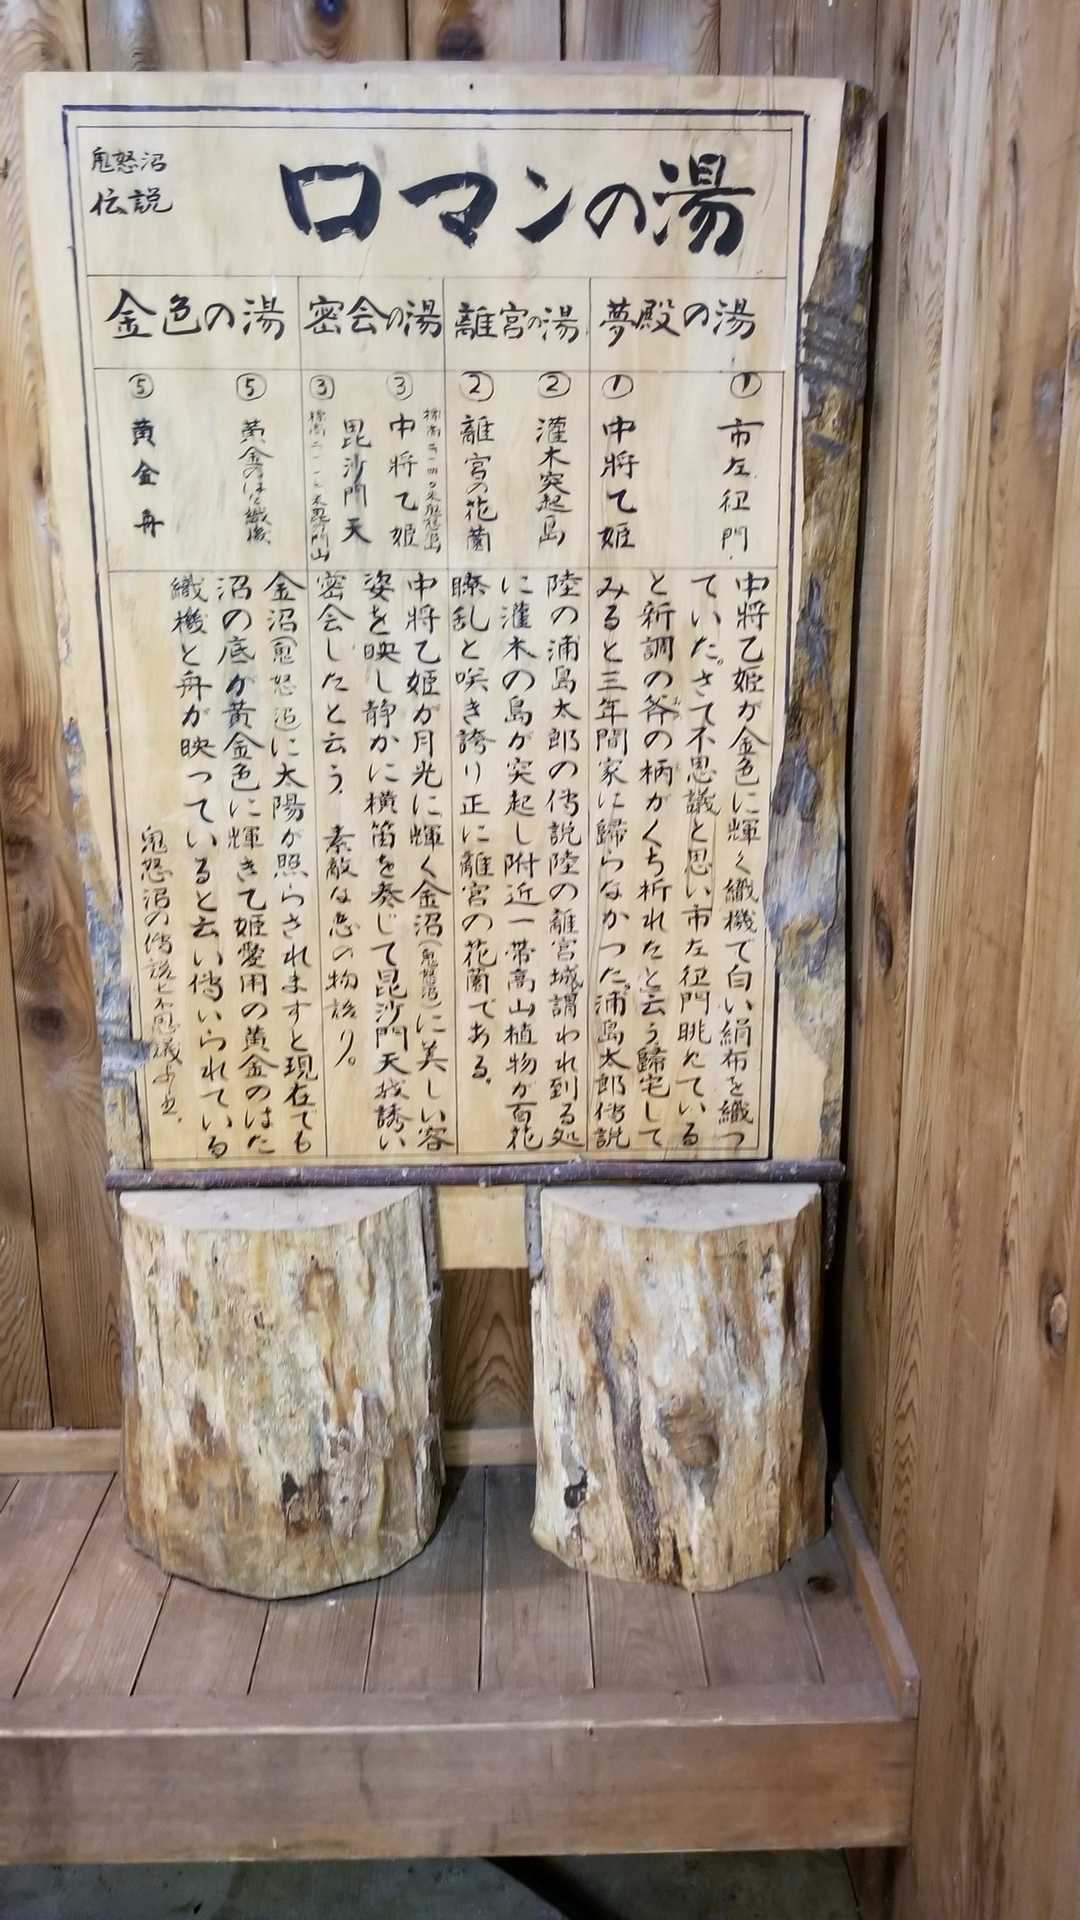 鬼怒沼
伝説
ロマンの湯
夢殿の湯
① 市左衽門
① 中将乙姫
中将乙姫が金色に輝く織機で白い絹布を織つ
ていた。さて不思議と思い市左衽門眺めている
と新調の斧の柄がくち折れたと云う歸宅して
みると三年間家に歸らなかつた。浦島太郎傳説
離宮の湯
② 灌木突起島
② 離宮の花薗
陸の浦島太郎の傳説陸の離宮城謂われ到る処
に灌木の島が突起し附近一帯高山植物が百花
瞭乱と咲き誇り正に離宮の花薗である。
密会の湯
③ 中将乙姫
毘沙門天
③
中将乙姫が月光に輝く金沼(鬼怒沼)に美しい容
姿を映し静かに横笛を奏じて毘沙門天我誘い
密会したと云う。 素敵な恋の物語り。
金色の湯
⑤ 黄金のはた織機
⑤ 黄金舟
金沼(鬼怒沼)に太陽が照らされますと現在でも
沼の底が黄金色に輝き乙姫愛用の黄金のはた
織機と舟が映つていると云い傳いられている
鬼怒沼の傳説と不思議より。